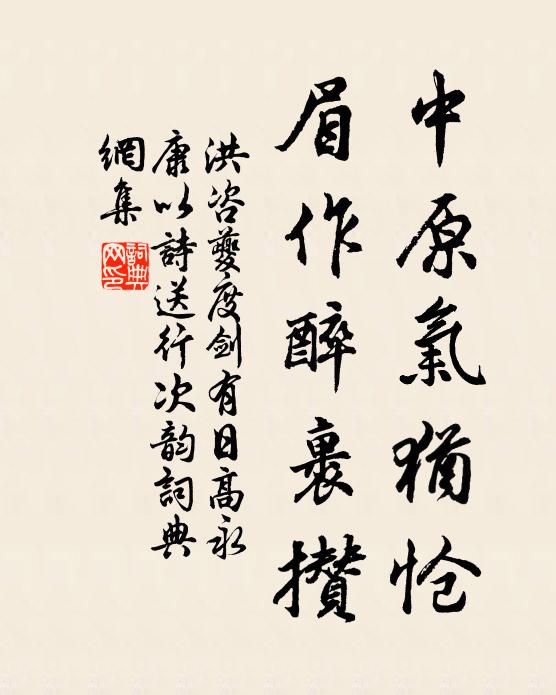 中原氣猶愴
眉作醉裹攢
洪咨夔度劍有日高永
康以詩送行次韵詞典
網集
詞典網印